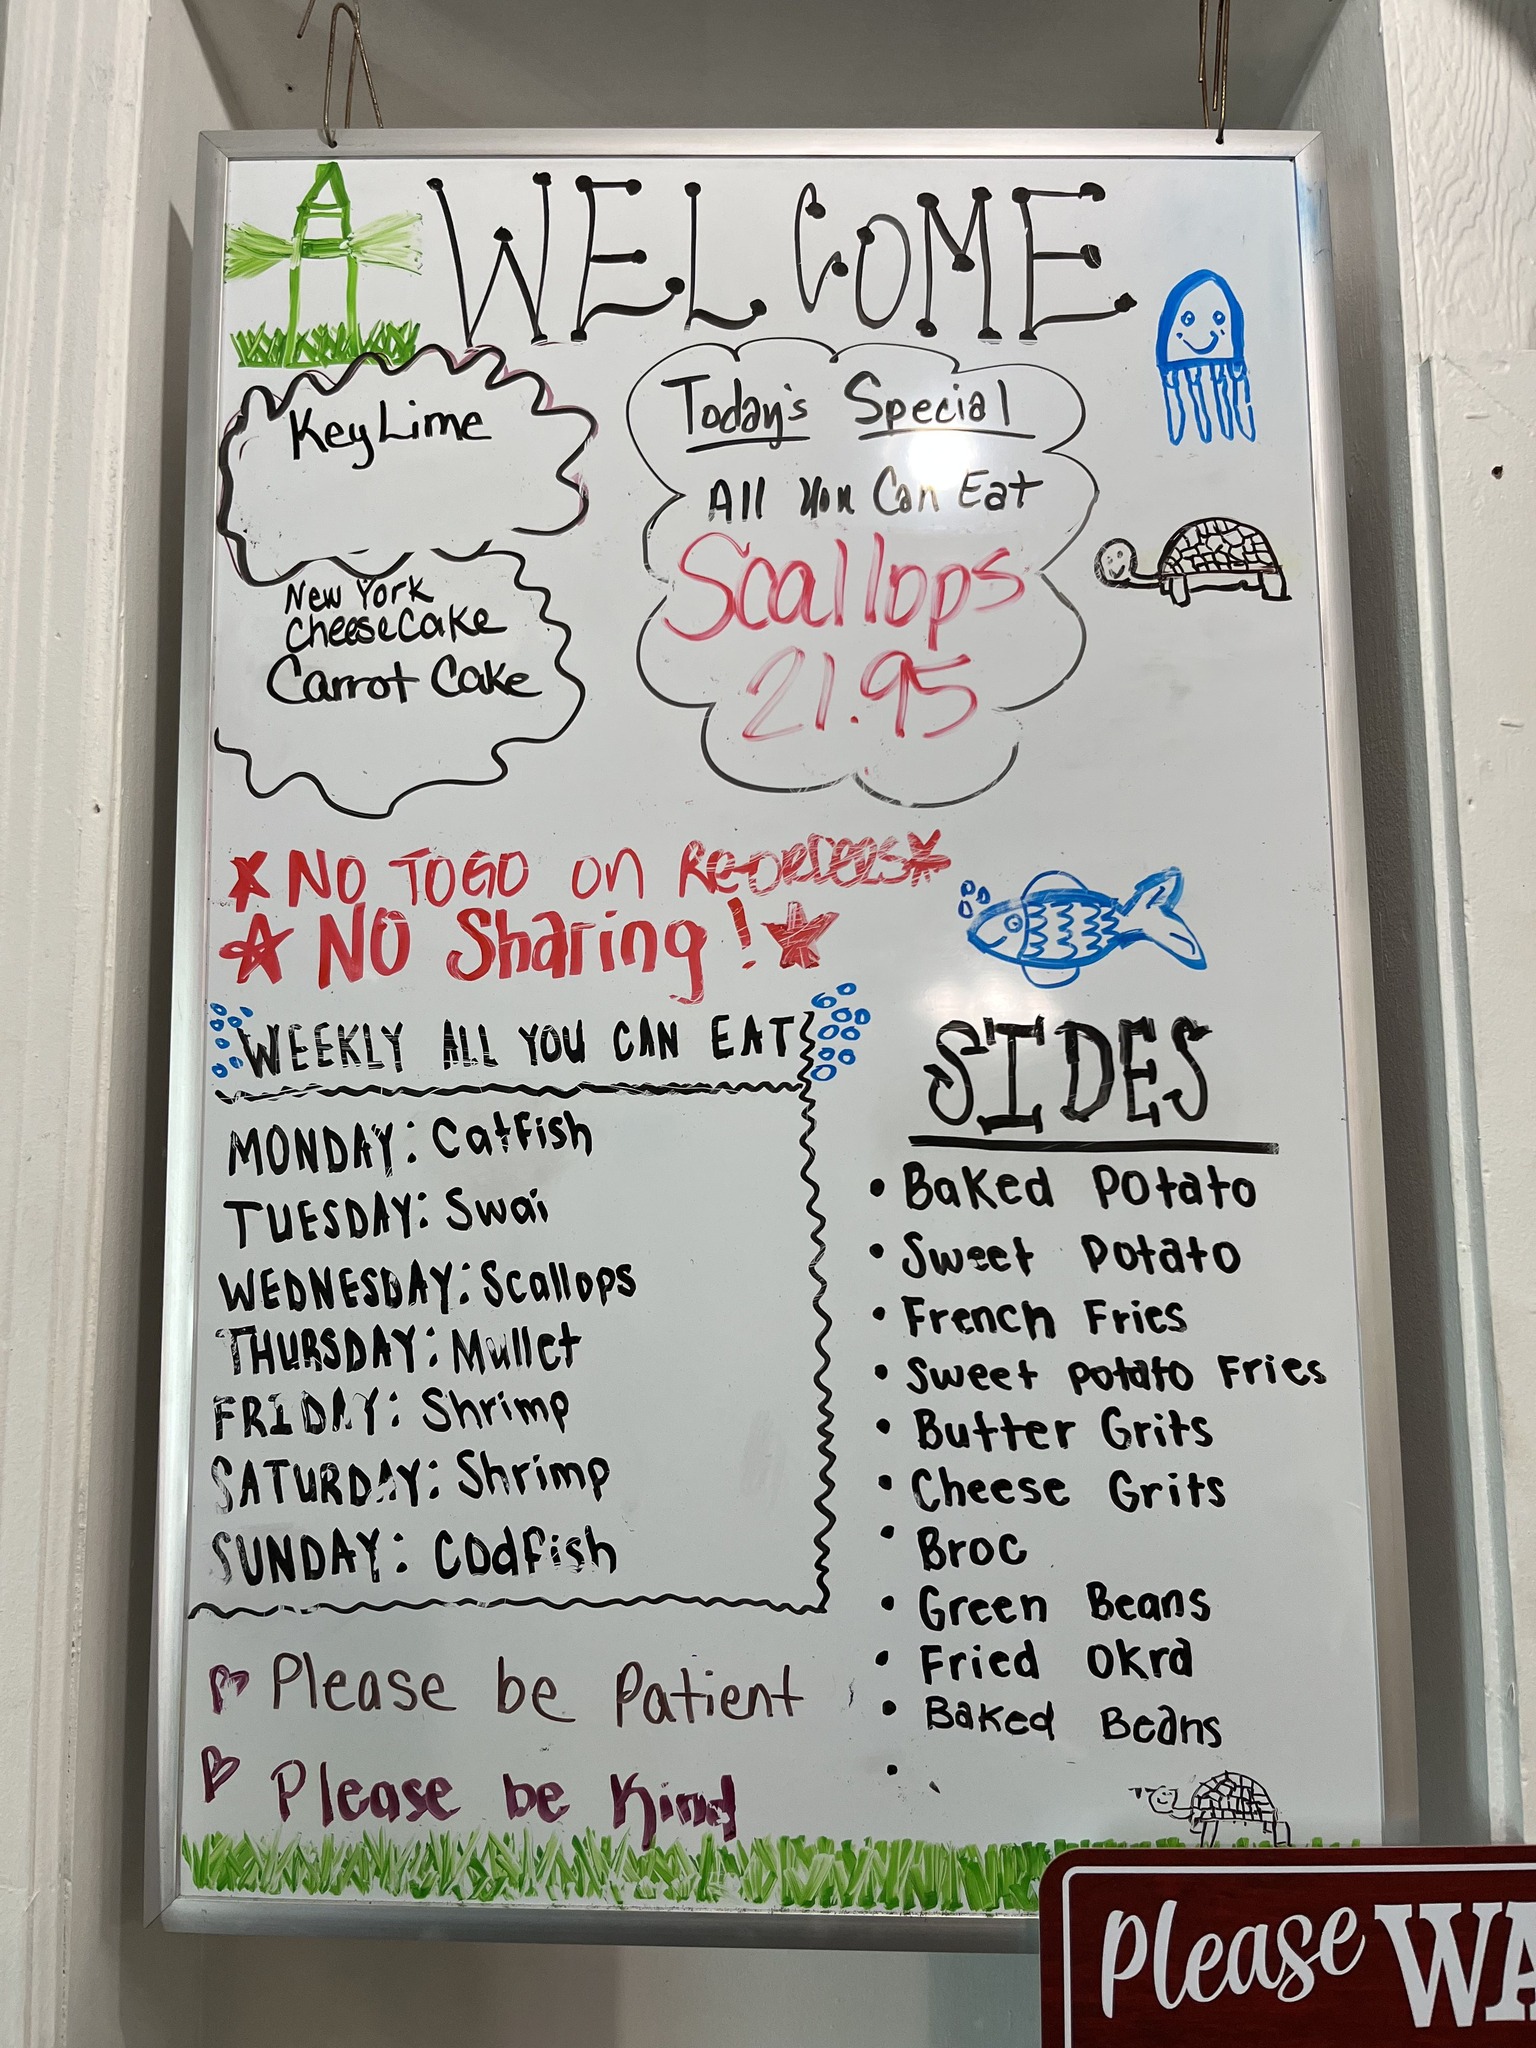 WELCOME
Key Lime
New York
cheesecake
Carrot Cake
Today's Special
All You Can Eat
Scallops
21.95
NO TOGO on Reorders
NO Sharing!
WEEKLY ALL YOU CAN EAT
MONDAY: Catfish
TUESDAY: Swai
WEDNESDAY: Scallops
THURSDAY: Mullet
FRIDAY: Shrimp
SATURDAY: Shrimp
SUNDAY: Codfish
Please be Patient
Please be Kind
SIDES
• Baked Potato
• Sweet Potato
• French Fries
• Sweet Potato Fries
• Butter Grits
• Cheese Grits
• Broc
• Green Beans
• Fried Okra
• Baked Beans
•
Please WA